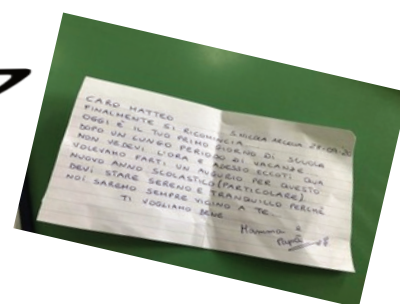 CARO MATTEO
FINALMENTE SI RICOMINCIA
OGGI È IL TUO PRIMO GIORNO DI SCUOLA
DOPO UN LUNGO PERIODO DI VACANZE
NON VEDEVI L'ORA E ADESSO ECCOTI QUA
VOLEVAMO FARTI UN AUGURIO PER QUESTO
NUOVO ANNO SCOLASTICO (PARTICOLARE)
DEVI STARE SERENO E TRANQUILLO PERCHÈ
NOI SAREMO SEMPRE VICINO A TE
TI VOGLIAMO BENE
Mamma e